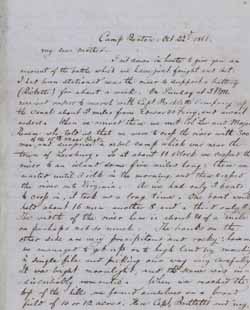 Camp Benton, Oct 22nd 1861.
My dear mother
I sit down in haste to give you an
account of the battle which we have just fought and lost.
I had been stationed near the river to support a battery
(Ricketts) for about a week. On Sunday at 1 P.M.
received orders to march with Capt. Bartlett's Company up
the canal about 3 miles from Edwards Ferry, and await
orders. When we arrived there we met Col. Lee and Major
Revere who told us that we were to cross the river with two
men, and surprise a rebel camp which was near the
town of Leesburg. At about 12 o'clock we crossed the
river to an island some few miles long; there we
waited until 2 o'clk in the morning, and then crossed
the river into Virginia. As we had only 3 boats
to cross in, it took us a long time. One boat would
hold about 16 men another 5 and a third only 4.
The width of the river here is about 1/4 of a mile
or perhaps not so much. The banks on the
other side are very precipitous and rocky; however
we managed to get up on to high land by marching
in single file and picking our way very carefully.
It was bright moonlight, and the scene was in-
describably romantic. When we reached the
top of the hill we found ourselves on a broad
field of 10 or 12 acres. Here Capt. Bartlett and my